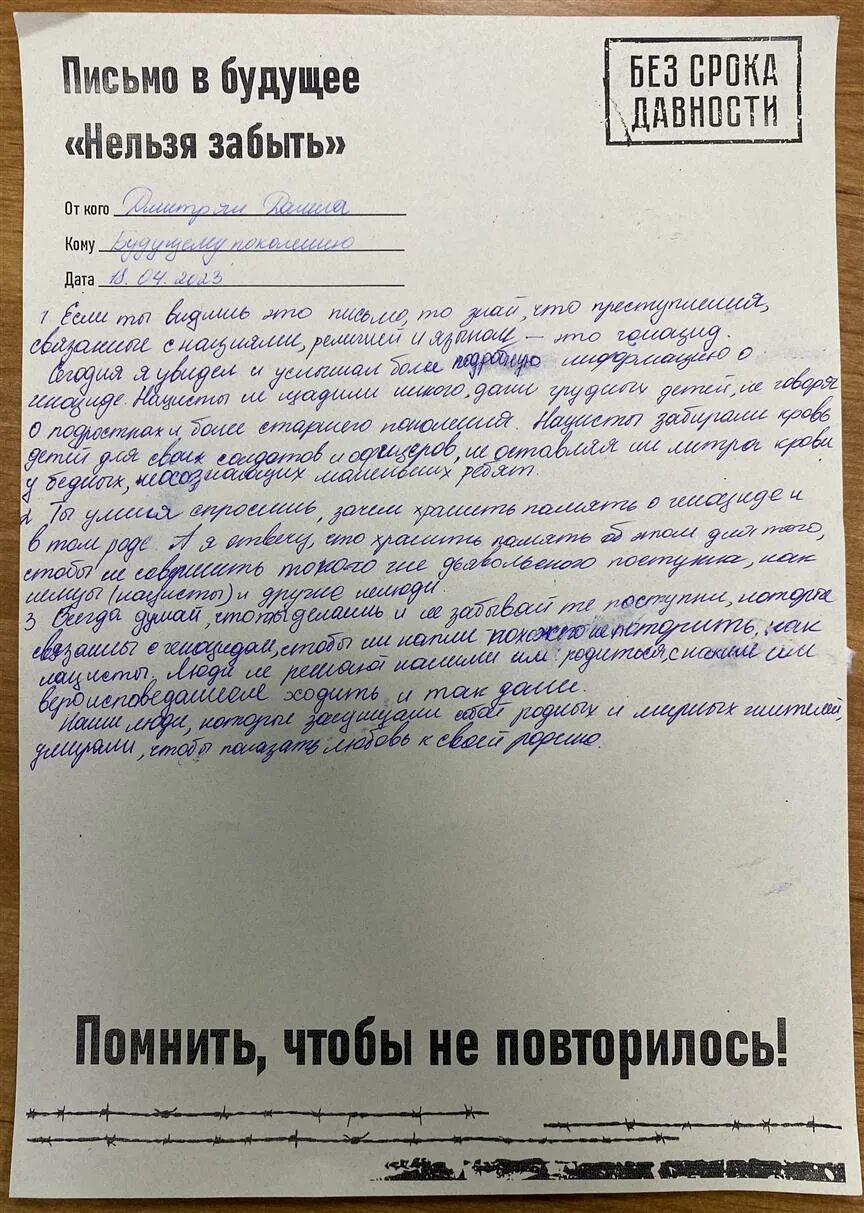 Письмо в будущее
«Нельзя забыть»
БЕЗ СРОКА
ДАВНОСТИ
От кого Дмитрян Данила
Кому Будущему поколению
Дата 18.04.2023
1 Если ты видишь это письмо, то знай, что преступления,
связанные с нациями, религией и языком – это геноцид.
Сегодня я увидел и услышал более подробную информацию о
геноциде. Нацисты не щадили никого, даже грудных детей, не говоря
о подростках и более старшего поколения. Нацисты забирали кровь
детей для своих солдатов и офицеров, не оставляя ни литра крови
у бедных, неосознающих маленьких ребят.
2 Ты у меня спросишь, зачем хранить память о геноциде и
в том роде. А я отвечу, что хранить память об этом для того,
чтобы не совершить такого же дьявольского поступка, как
немцы (нацисты) и другие нелюди.
3 Всегда думай, что ты делаешь и не забывай те поступки, которые
связаны с геноцидом, чтобы ни капли похожего не повторить, как
нацисты. Люди не решают какими им родиться, с каким им
вероисповеданием ходить и так далее.
Наши люди, которые защищали своих родных и мирных жителей,
умирали, чтобы показать любовь к своей родине.
Помнить, чтобы не повторилось!